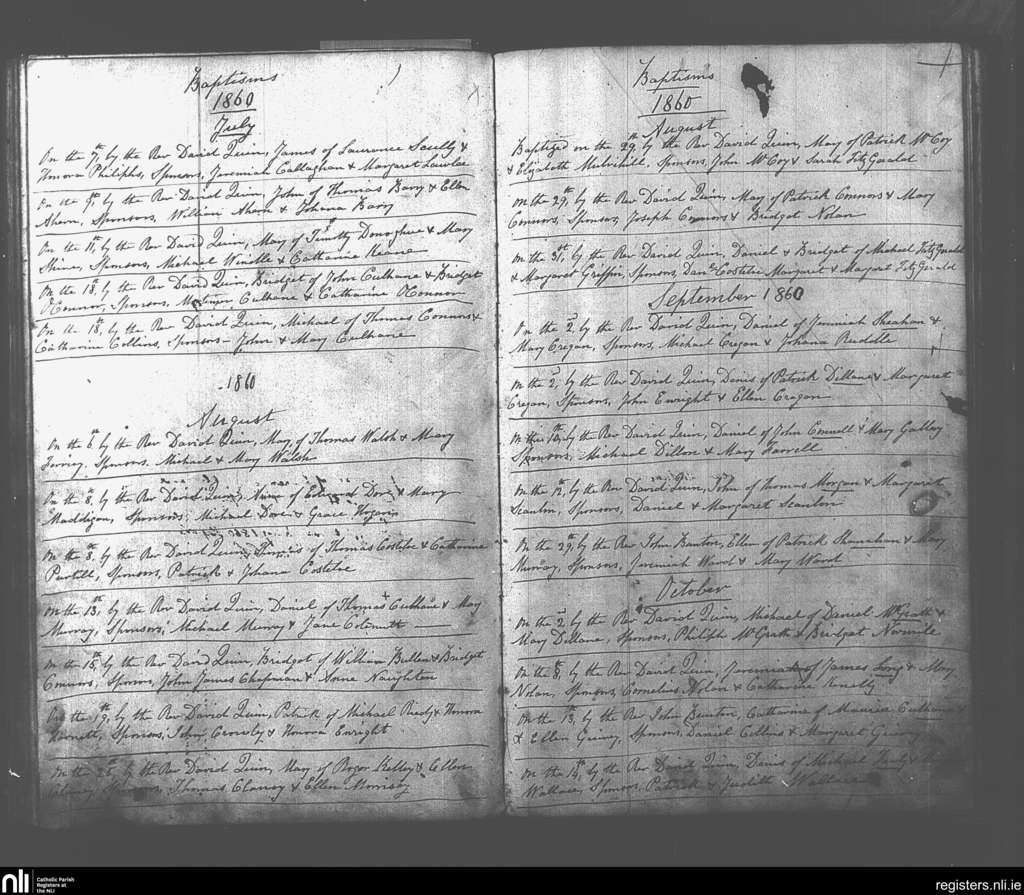 Baptisms
1860
July
On the 7th, by the Rev David Quin, James of Laurence Scully &
Honora Philiphs, Sponsors, Jeremiah Callaghan & Margaret Lawlor
On the 9th, by the Rev David Quin, John of Thomas Barry & Ellen
Ahern, Sponsors, William Ahern & Johana Barry
On the 11th, by the Rev David Quin, May of Timothy Donoghue & Mary
Shine, Sponsors, Michael Windle & Catharine Keane
On the 18, by the Rev David Quin, Bridget of John Culhane & Bridget
OConnor, Sponsors, Mortimer Culhane & Catharine OConnor
On the 18, by the Rev David Quin, Michael of Thomas Connors &
Catharine Collins, Sponsors - John & Mary Culhane
1860
August
On the 6th by the Rev David Quin, May, of Thomas Walsh & Mary
Sponsors. Michael & May Walsh
On the 8, by the Rev David Quin, of Dore & Mary
Maddigan, Sponsors, Michael Dore & Grace Hogan
On the 8, by the Rev David Quin, of Thomas Costeloe & Catharine
Sponsors, Patrick & Johana Costeloe
On the 13th, by the Rev David Quin, Daniel of Thomas Culhane & May
Murray, Sponsors, Michael Murray & Jane
On the 15th, by the Rev David Quin, Bridget of William Bullen & Bridget
Connors, Sponsors, John James Chapman & Anne Naughton
On the 19th, by the Rev David Quin, Patrick of Michael & Honora
Sponsors, John & Honora Enright
On the 25, by the Rev David Quin, May of Roger Kelley & Ellen
Clancy, Sponsors, Thomas Clancy & Ellen Morrisey
Baptisms
1860
August
Baptized on the 29th by the Rev David Quin, May of Patrick McCoy
& Elizabeth Mulvihill, Sponsors, John McCoy & Sarah FitzGerald
On the 29th, by the Rev David Quin, May of Patrick Connors & Mary
Connors, Sponsors, Joseph Connors & Bridget Nolan
On the 31st, by the Rev David Quin, Daniel & Bridget of Michael FitzGerald
& Margaret Griffin, Sponsors, Danl Costeloe Margaret & Margaret FitzGerald
September 1860
On the 2, by the Rev David Quin, Daniel of Jeremiah Sheahan &
Mary Cregan, Sponsors, Michael Cregan & Johana Ruddle
On the 2, by the Rev David Quin, Denis of Patrick Dillane & Margaret
Cregan, Sponsors, John Enright & Ellen Cregan
On the 10th, by the Rev David Quin, Daniel of John Connell & Mary
Sponsors, Michael Dillon & Mary Farrell
On the 12th, by the Rev David Quin, John of Thomas Morgan & Margaret
Scanlon, Sponsors, Daniel & Margaret Scanlon
On the 29th, by the Rev John Bunton, Ellen of Patrick Shanahan & Mary
Murray, Sponsors, Jeremiah Ward & May Ward
October
On the 2, by the Rev David Quin, Michael of Daniel McGrath &
May Dillane, Sponsors, Philiph McGrath & Bridget Normile
On the 8, by the Rev David Quin, Jeremiah of James Long & Mary
Nolan, Sponsors, Cornelius Nolan & Catharine Kenelly
On the 13, by the Rev John Bunton, Catharine of Maurice Culhane
& Ellen Guiney, Sponsors, Daniel Collins & Margaret Guiney
On the 14th, by the Rev David Quin, Denis of Michael
Wallace, Sponsors, Patrick & Judith Wallace
nli
Catholic Parish
Registers at
the NLI
registers.nli.ie